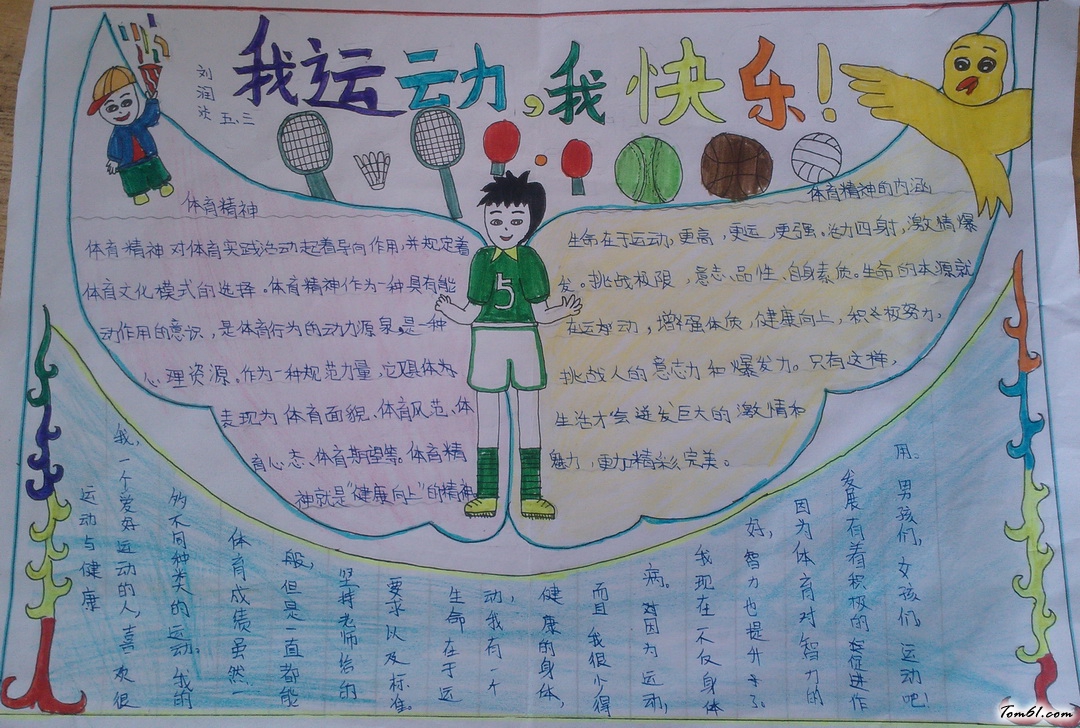 我运动,我快乐!
刘润
五.三
体育精神
体育精神对体育实践活动起着导向作用,并规定着
体育文化模式的选择。体育精神作为一种具有能
动作用的意识,是体育行为的动力源泉,是一种
心理资源。作为一种规范力量,它具体为
表现为体育面貌、体育风范、体
育心态、体育期望等。体育精
神就是“健康向上”的精神
体育精神的内涵
生命在于运动,更高,更远,更强。活力四射,激情爆
发。挑战极限,意志,品性,自身素质。生命的本源就
在运动,增强体质,健康向上,积极努力。
挑战人的意志力和爆发力。只有这样,
生活才会迸发巨大的激情和
魅力,更加精彩,完美。
运动与健康
我,一个爱好运动的人,喜欢很
多不同种类的运动。我的
体育成绩虽然一
般,但是一直都能
坚持老师给的
要求以及标准。
生命在于运
动,我有一个
健康的身体,
而且我很少得
病。因为运动,
我现在不仅身体
好,智力也提升了。
因为体育对智力的
发展有着积极的促进作
用。男孩们,女孩们,运动吧!
Tom61.com